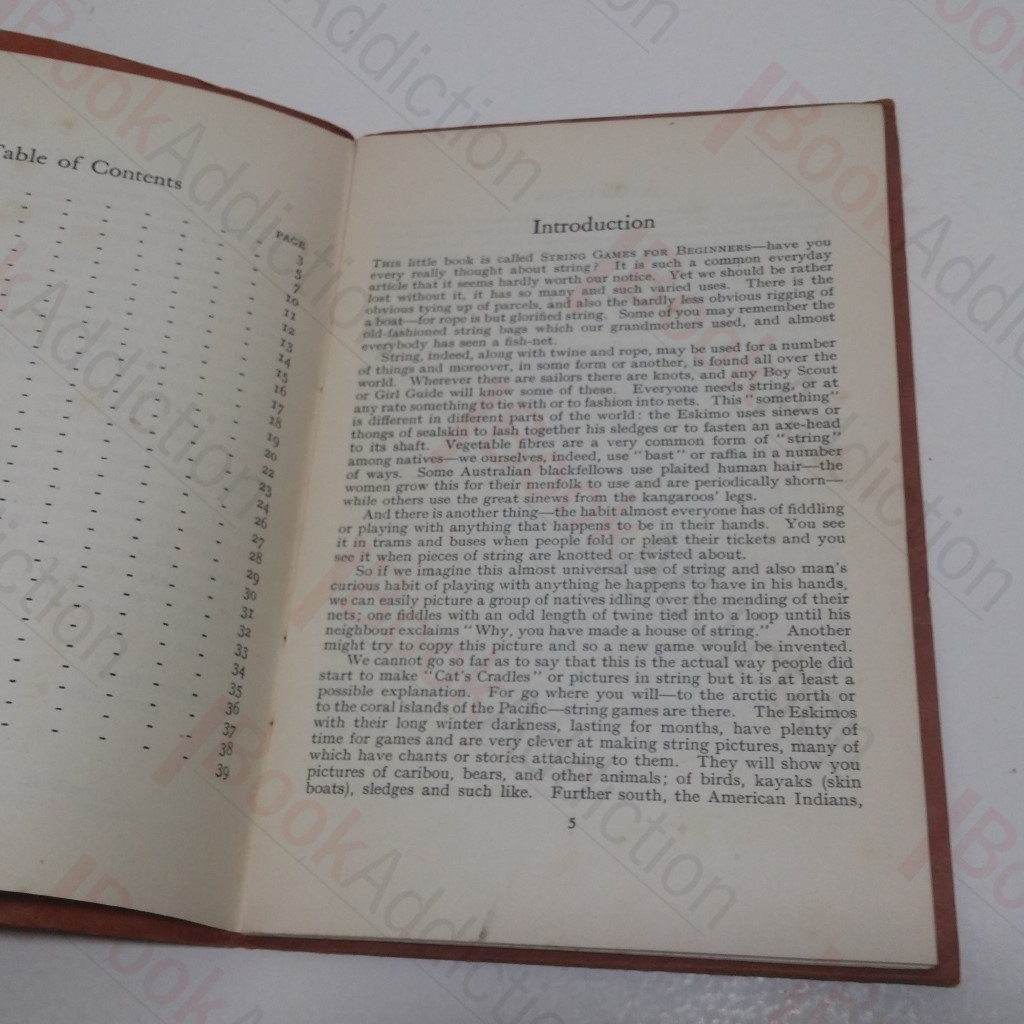 Table of Contents
PAGE
3
5
7
10
11
12
13
14
15
16
17
18
19
20
22
23
24
26
27
28
29
30
31
32
33
34
35
36
37
38
39
Introduction
THIS little book is called STRING GAMES FOR BEGINNERS—have you
every really thought about string? It is such a common everyday
article that it seems hardly worth our notice. Yet we should be rather
lost without it, it has so many and such varied uses. There is the
obvious tying up of parcels, and also the hardly less obvious rigging of
a boat—for rope is but glorified string. Some of you may remember the
old-fashioned string bags which our grandmothers used, and almost
everybody has seen a fish-net.
String, indeed, along with twine and rope, may be used for a number
of things and moreover, in some form or another, is found all over the
world. Wherever there are sailors there are knots, and any Boy Scout
or Girl Guide will know some of these. Everyone needs string, or at
any rate something to tie with or to fashion into nets. This "something"
is different in different parts of the world: the Eskimo uses sinews or
thongs of sealskin to lash together his sledges or to fasten an axe-head
to its shaft. Vegetable fibres are a very common form of "string"
among natives—we ourselves, indeed, use "bast" or raffia in a number
of ways. Some Australian blackfellows use plaited human hair—the
women grow this for their menfolk to use and are periodically shorn—
while others use the great sinews from the kangaroos' legs.
And there is another thing—the habit almost everyone has of fiddling
or playing with anything that happens to be in their hands. You see
it in trams and buses when people fold or pleat their tickets and you
see it when pieces of string are knotted or twisted about.
So if we imagine this almost universal use of string and also man's
curious habit of playing with anything he happens to have in his hands,
we can easily picture a group of natives idling over the mending of their
nets; one fiddles with an odd length of twine tied into a loop until his
neighbour exclaims "Why, you have made a house of string." Another
might try to copy this picture and so a new game would be invented.
We cannot go so far as to say that this is the actual way people did
start to make "Cat's Cradles" or pictures in string but it is at least a
possible explanation. For go where you will—to the arctic north or
to the coral islands of the Pacific—string games are there. The Eskimos
with their long winter darkness, lasting for months, have plenty of
time for games and are very clever at making string pictures, many of
which have chants or stories attaching to them. They will show you
pictures of caribou, bears, and other animals; of birds, kayaks (skin
boats), sledges and such like. Further south, the American Indians,
5
BookAddiction